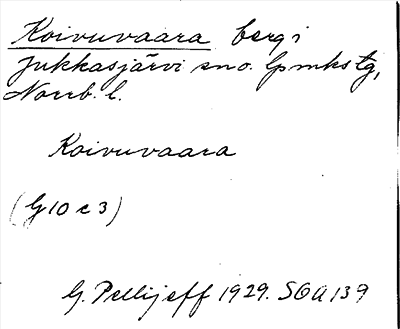 Koivuvaara berg i
Jukkasjärvi sno. Lpmkstg,
Norrb. l.
Koivuvaara
(G10 c 3)
G. Pellijeff 1929. SOA 139